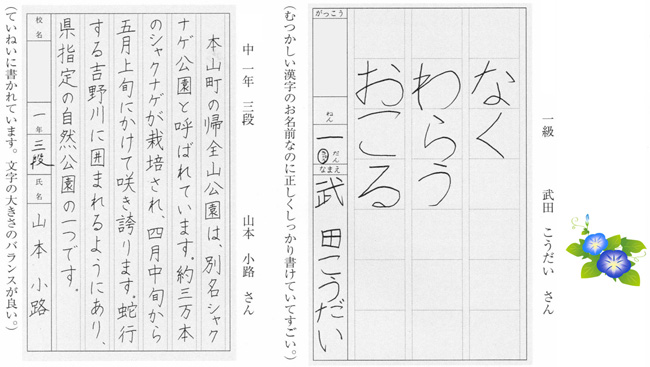 一級 武田 こうだい さん
なく
わらう
おこる
がっこう
ねん
一
きゅう
だん
なまえ
武田こうだい
(むつかしい漢字のお名前なのに正しくしっかり書けていてすごい。)
中一年 三段 山本 小路 さん
本山町の帰全山公園は、別名シャク
ナゲ公園と呼ばれています。約三万本
のシャクナゲが栽培され、四月中旬から
五月上旬にかけて咲き誇ります。蛇行
する吉野川に囲まれるようにあり、
県指定の自然公園の一つです。
校名
一年
三段
氏名
山本 小路
(ていねいに書かれています。文字の大きさのバランスが良い。)